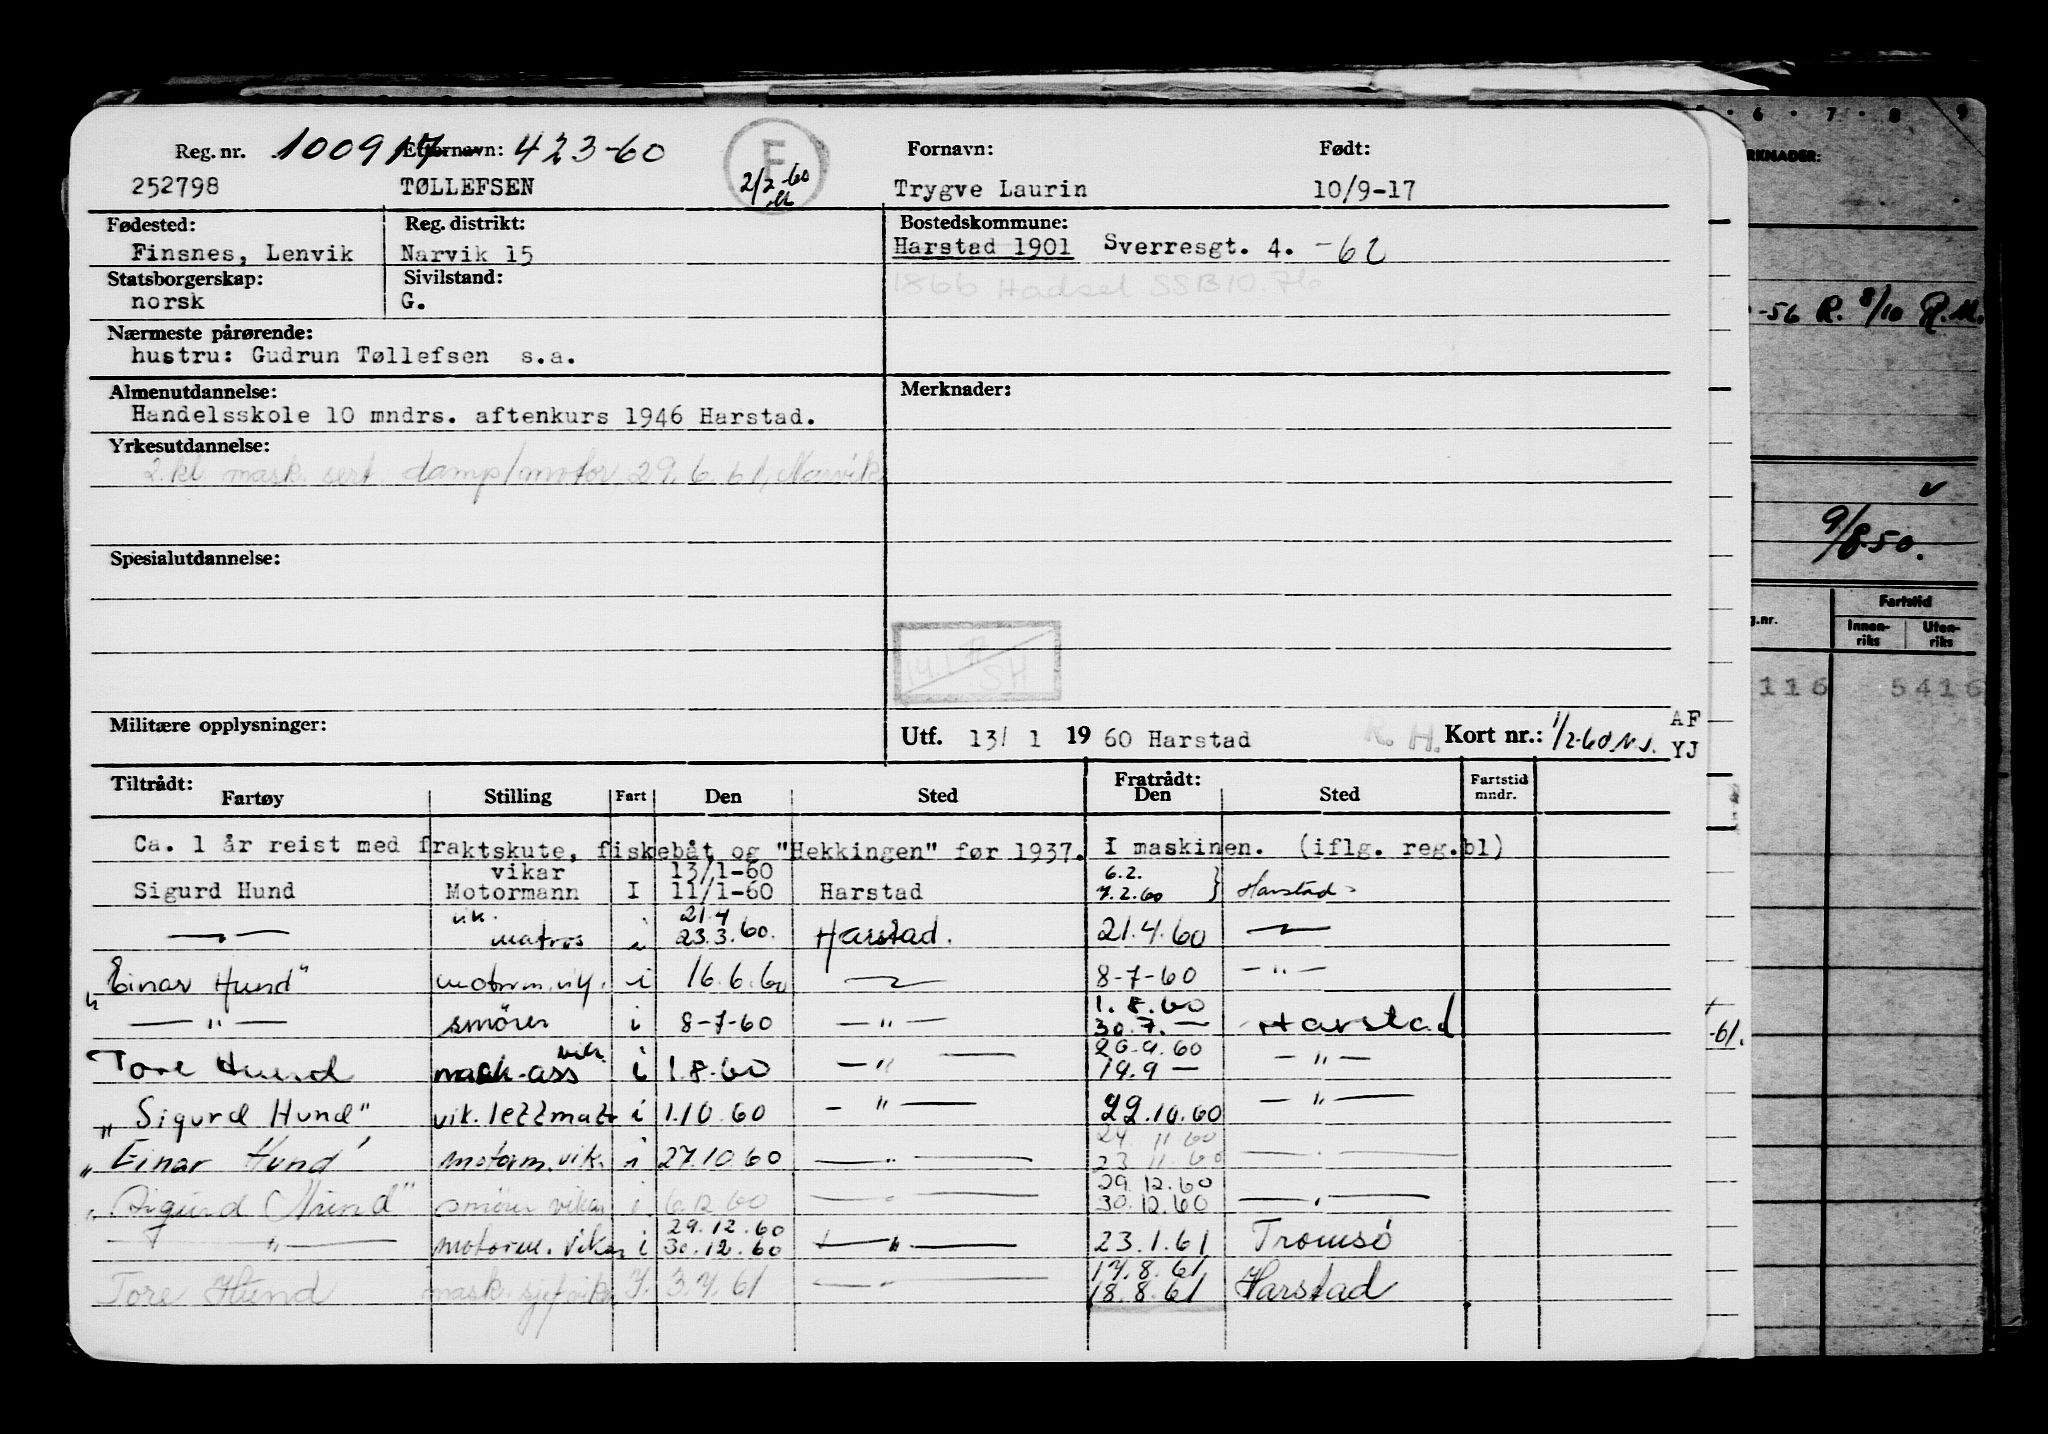 Reg. nr. 100917 Etternavn: 423-60 F Fornavn: Født:
252798 TØLLEFSEN 2/2-60 Trygve Laurin 10/9-17
Fødested: Reg. distrikt: Bostedskommune:
Finsnes, Lenvik Narvik 15 Harstad 1901 Sverresgt. 4. -62
Statsborgerskap: Sivilstand: 1866 Hadsel SSB 10.76
norsk G.
Nærmeste pårørende:
hustru: Gudrun Tøllefsen s.a.
Almenutdannelse: Merknader:
Handelsskole 10 mndrs. aftenkurs 1946 Harstad.
Yrkesutdannelse:
2. kl mask. sert. damp/motor 29.6.61, Narvik
Spesialutdannelse:
SH
Militære opplysninger: Utf. 13/ 1 19 60 Harstad R.H. Kort nr.: 1/2-60 N.J. AF
YJ
Tiltrådt: Fratrådt: Fartstid
Fartøy Stilling Fart Den Sted Den Sted mndr.
Ca. 1 år reist med fraktskute, fiskebåt og "Hekkingen" før 1937. I maskinen. (iflg. reg.bl)
vikar 13/1-60 6.2.
Sigurd Hund Motormann I 11/1-60 Harstad 7.2.60 } Harstad
vik. 21.4
— " — matros i 23.3.60. Harstad. 21.4.60 — " —
"Einar Hund" motorm. vik. i 16.6.60 — " — 8-7-60 — " —
1.8.60
— " — smörer i 8-7-60 — " — 30.7. — Harstad
vik. 20.9.60
Tore Hund mask-ass i 1.8.60 — " — 19.9 — — " —
"Sigurd Hund" vik. lettmatr i 1.10.60 — " — 22.10.60 — " —
24.11.60
"Einar Hund" motorm. vik. i 27.10.60 — " — 23.11.60 — " —
29.12.60
"Sigurd Hund" smörer vikar i 6.12.60 — " — 30.12.60 — " —
29.12.60
— " — motorm. vikar i 30.12.60 — " — 23.1.61 Tromsö
17.8.61
Tore Hund mask. sjef vikar I. 3.7.61 — " — 18.8.61 Harstad
6 . 7 . 8 . 9
RKNADER:
-56 R. 8/10 R.M.
9/8.50.
Fartstid
g.nr. Innen-riks Uten-riks
116 5416
-61.